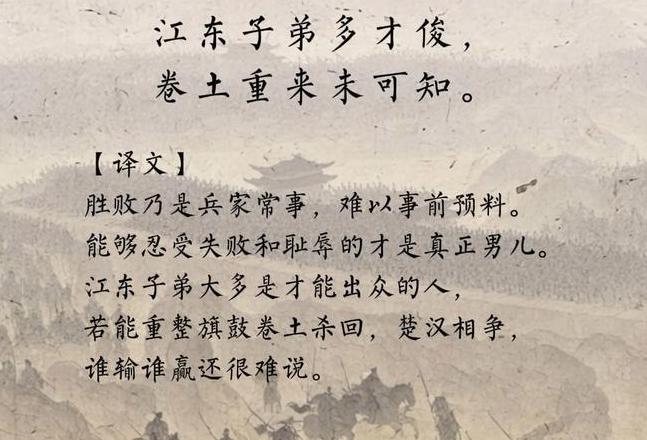 江东子弟多才俊，
卷土重来未可知。
【译文】
胜败乃是兵家常事，难以事前预料。
能够忍受失败和耻辱的才是真正男儿。
江东子弟大多是才能出众的人，
若能重整旗鼓卷土杀回，楚汉相争，
谁输谁赢还很难说。